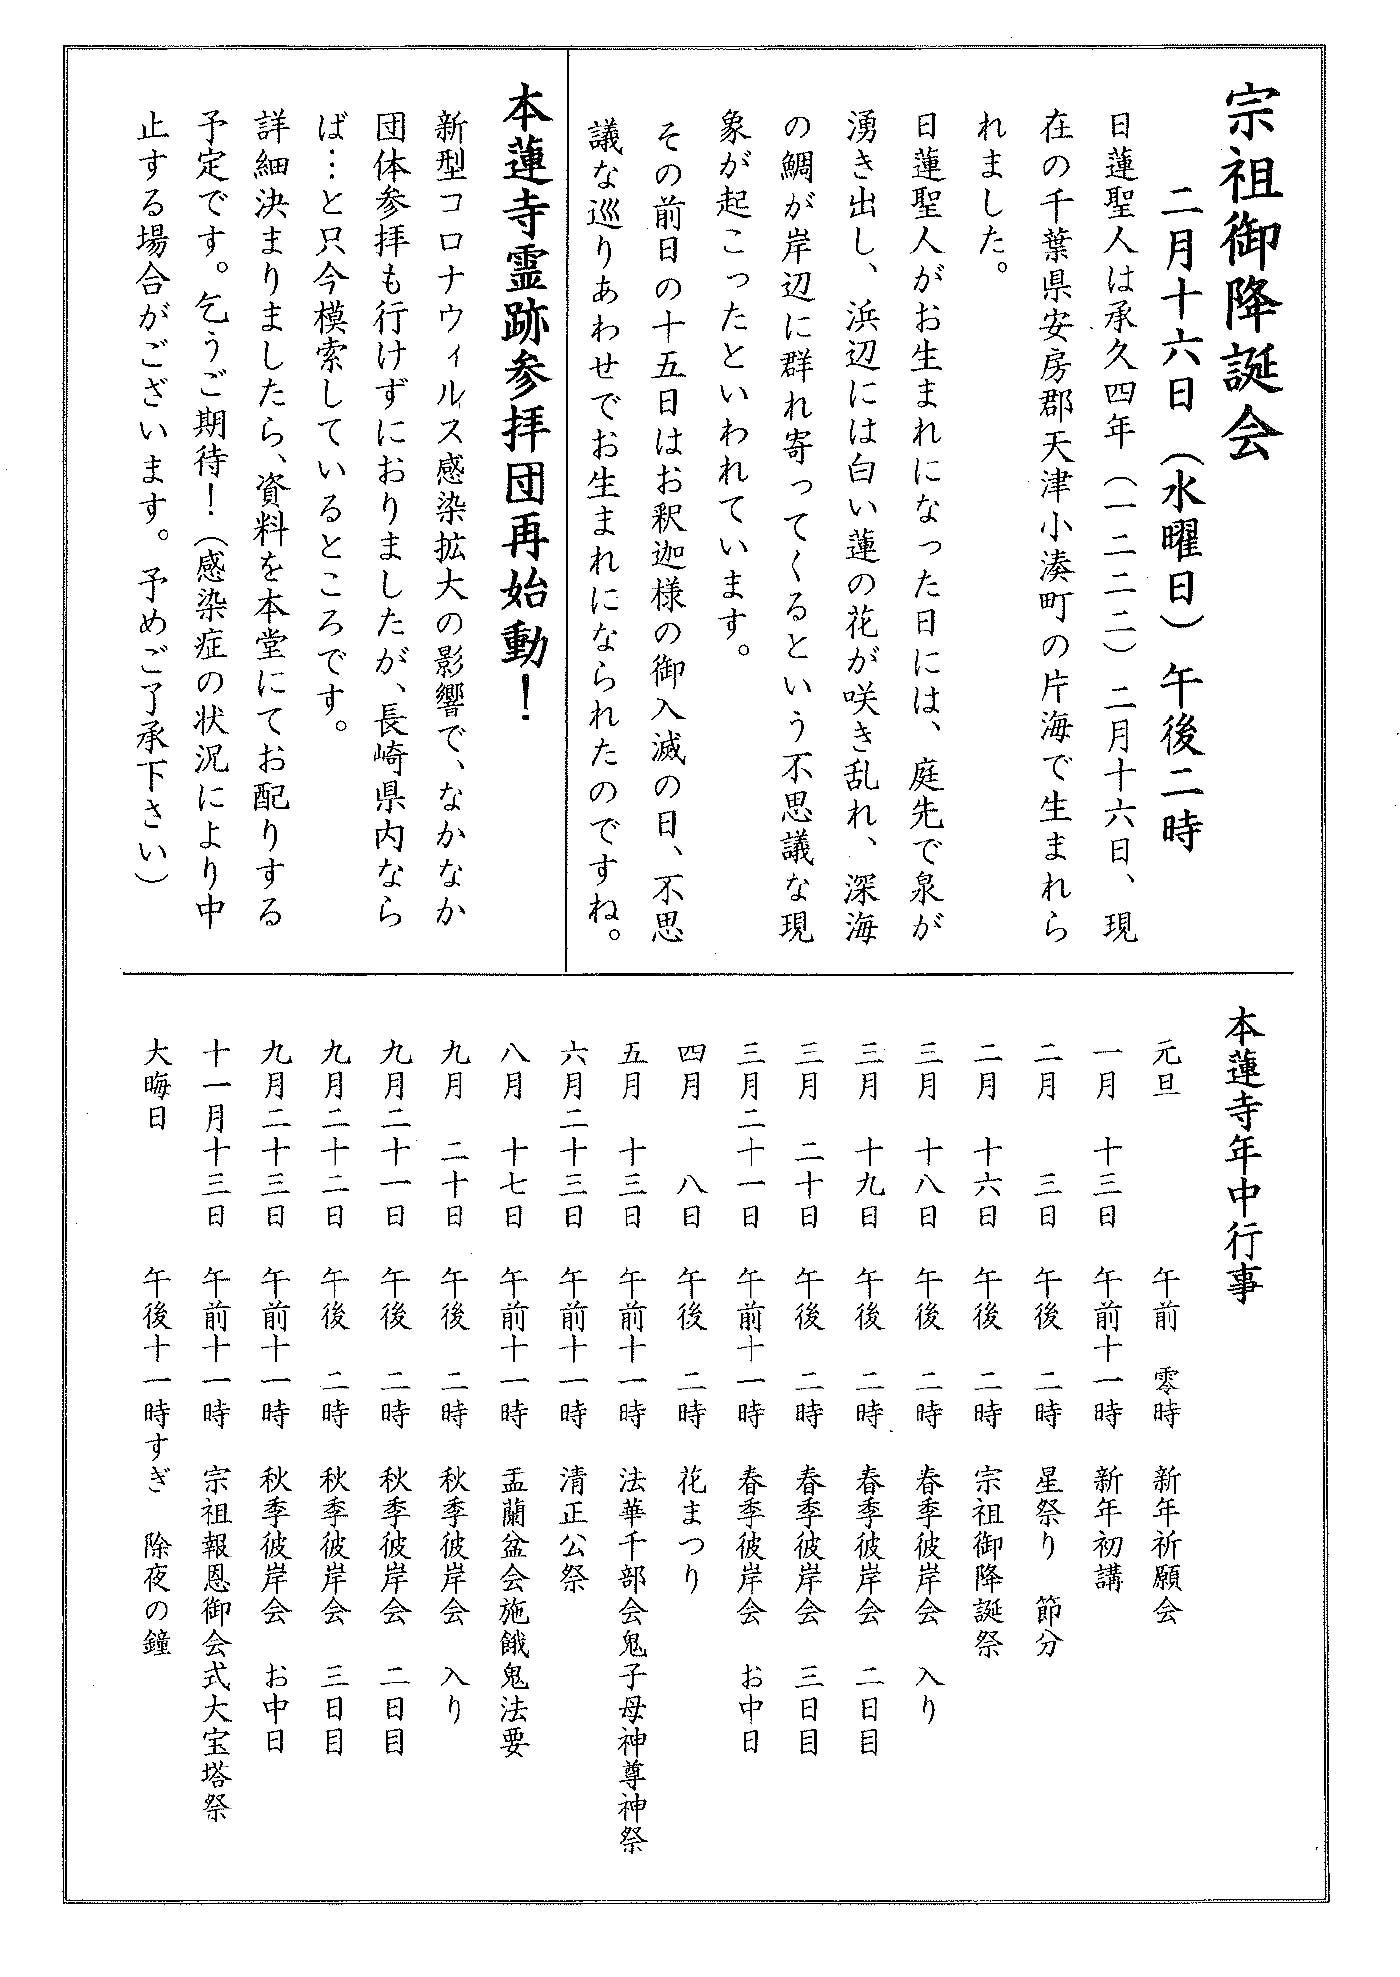 宗祖御降誕会
二月十六日（水曜日）午後二時
日蓮聖人は承久四年（一二二二）二月十六日、現
在の千葉県安房郡天津小湊町の片海で生まれら
れました。
日蓮聖人がお生まれになった日には、庭先で泉が
湧き出し、浜辺には白い蓮の花が咲き乱れ、深海
の鯛が岸辺に群れ寄ってくるという不思議な現
象が起こったといわれています。
その前日の十五日はお釈迦様の御入滅の日、不思
議な巡りあわせでお生まれになられたのですね。
本蓮寺霊跡参拝団再始動！
新型コロナウィルス感染拡大の影響で、なかなか
団体参拝も行けずにおりましたが、長崎県内なら
ば…と只今模索しているところです。
詳細決まりましたら、資料を本堂にてお配りする
予定です。乞うご期待！（感染症の状況により中
止する場合がございます。予めご了承下さい）
本蓮寺年中行事
元旦 午前 零時 新年祈願会
一月 十三日 午前十一時 新年初講
二月 三日 午後 二時 星祭り 節分
二月 十六日 午後 二時 宗祖御降誕祭
三月 十八日 午後 二時 春季彼岸会 入り
三月 十九日 午後 二時 春季彼岸会 二日目
三月 二十日 午後 二時 春季彼岸会 三日目
三月二十一日 午前十一時 春季彼岸会 お中日
四月 八日 午後 二時 花まつり
五月 十三日 午前十一時 法華千部会鬼子母神尊神祭
六月二十三日 午前十一時 清正公祭
八月 十七日 午前十一時 盂蘭盆会施餓鬼法要
九月 二十日 午後 二時 秋季彼岸会 入り
九月二十一日 午後 二時 秋季彼岸会 二日目
九月二十二日 午後 二時 秋季彼岸会 三日目
九月二十三日 午前十一時 秋季彼岸会 お中日
十一月十三日 午前十一時 宗祖報恩御会式大宝塔祭
大晦日 午後十一時すぎ 除夜の鐘